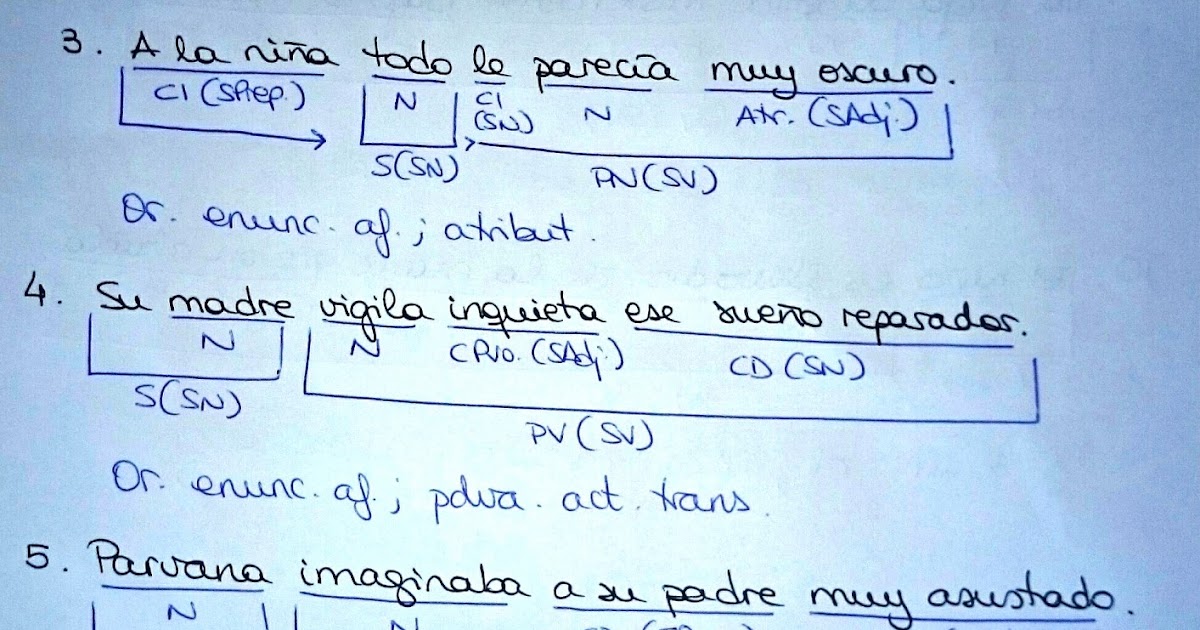 3. A la niña todo le parecía muy oscuro.
CI (SPrep.) N CI N Atr. (SAdj.)
(SN)
S(SN) PN(SV)
Or. enunc. af.; atribut.
4. Su madre vigila inquieta ese sueño reparador.
N N CPvo. (SAdj) CD (SN)
S(SN)
PV (SV)
Or. enunc. af.; pdva. act. trans.
5. Parvana imaginaba a su padre muy asustado.
N N